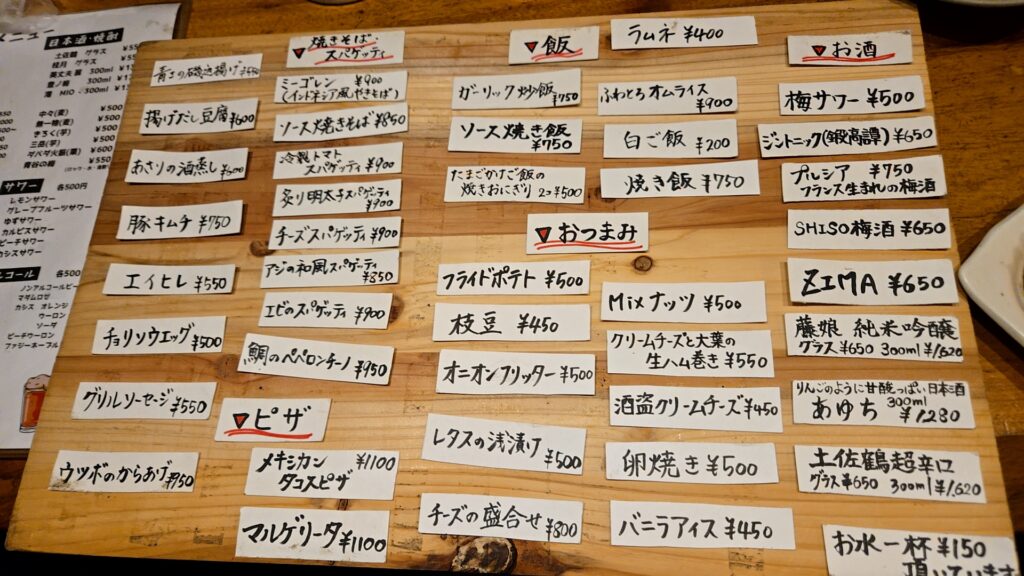 メニュー
日本酒・焼酎
土佐鶴 グラス
桂月 グラス
美丈夫 300ml
豊ノ梅 300ml
澪 MIO 300ml
中々(麦) ¥500
¥500
きろく(芋) ¥500
三岳(芋)
ダバダ火振(栗) ¥600
¥550
サワー 各500円
レモンサワー
グレープフルーツサワー
ゆずサワー
カルピスサワー
ピーチサワー
カシスサワー
コール 各500
ノンアルコールビー
マダムロゼ
カシス オレンジ
ウーロン
ソーダ
ピーチウーロン
ファジーネーブル
青さの磯辺揚げ
揚げだし豆腐 ¥600
あさりの酒蒸し ¥600
豚キムチ ¥750
エイヒレ ¥550
チョリソウエッグ ¥500
グリルソーセージ ¥550
ウツボのからあげ ¥950
▼焼きそば、
スパゲッティ
ミーゴレン ¥900
(インドネシア風やきそば)
ソース焼きそば ¥850
冷製トマト
スパゲッティ ¥900
炙り明太子スパゲッティ
¥900
チーズスパゲッティ ¥900
アジの和風スパゲッティ
¥850
エビのスパゲッティ ¥900
鯛のペペロンチーノ ¥950
▼ピザ
メキシカン ¥1100
タコスピザ
マルゲリータ ¥1100
▼飯
ガーリック炒飯 ¥750
ソース焼き飯
¥750
たまごかけご飯の
焼きおにぎり 2コ ¥500
ラムネ ¥400
ふわとろオムライス
¥900
白ご飯 ¥200
焼き飯 ¥750
▼おつまみ
フライドポテト ¥500
枝豆 ¥450
オニオンフリッター ¥500
レタスの浅漬け
¥500
チーズの盛合せ ¥800
Mixナッツ ¥500
クリームチーズと大葉の
生ハム巻き ¥550
酒盗クリームチーズ ¥450
卵焼き ¥500
バニラアイス ¥450
▼お酒
梅サワー ¥500
ジントニック(鍛高譚) ¥650
プルシア ¥750
フランス生まれの梅酒
SHISO梅酒 ¥650
ZIMA ¥650
藤娘 純米吟醸
グラス ¥650 300ml ¥1,620
りんごのように甘酸っぱい日本酒
あゆち 300ml ¥1280
土佐鶴超辛口
グラス ¥650 300ml ¥1,620
お水一杯 ¥150
頂いています